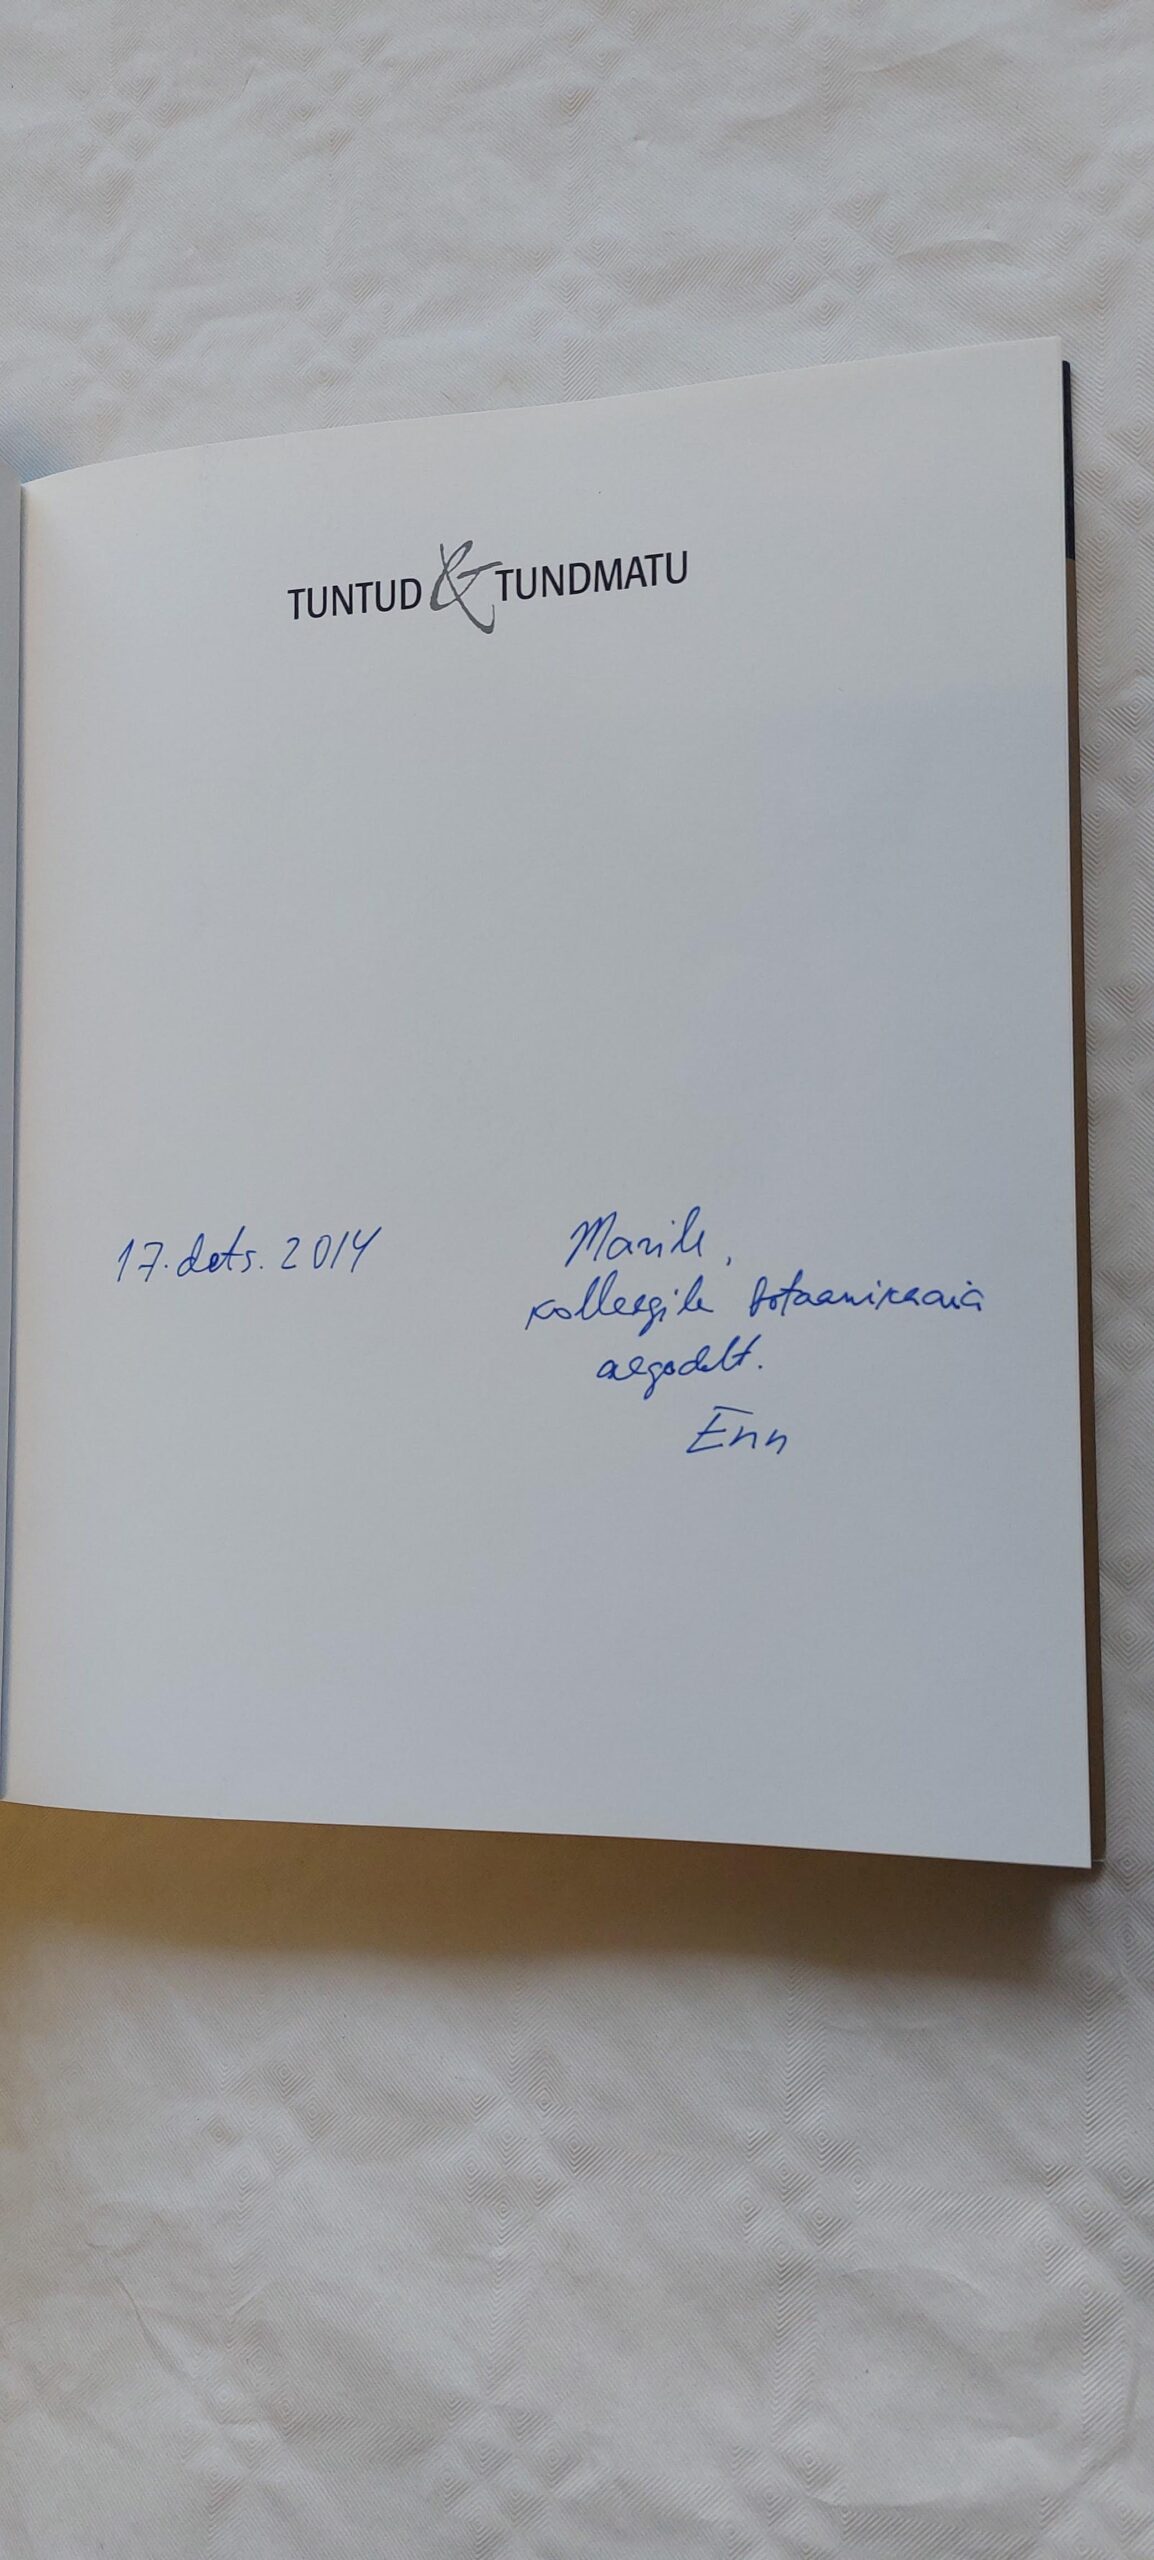 TUNTUD & TUNDMATU
17. dets. 2014
Marile,
kolleegile botaanikaaia
aegadelt.
Enn